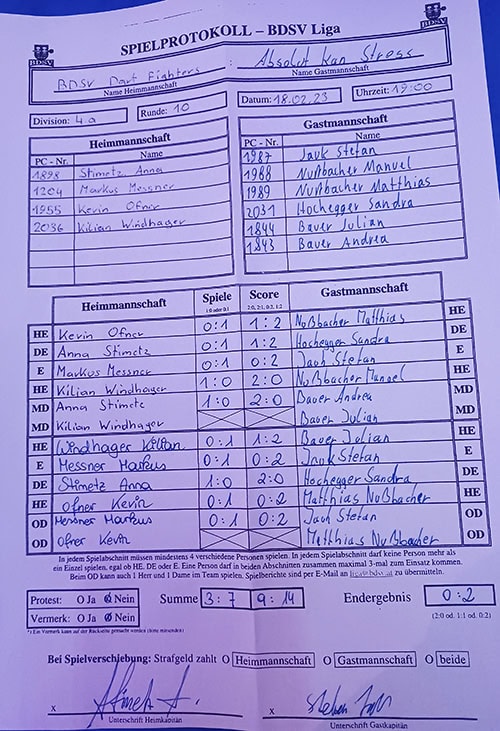 SPIELPROTOKOLL – BDSV Liga
BDSV Dart Fighters : Absolut Kan Stress
Name Heimmannschaft Name Gastmannschaft
Division: 4a Runde: 10 Datum: 18.02.23 Uhrzeit: 19:00
Heimmannschaft Gastmannschaft
PC - Nr. Name PC - Nr. Name
1898 Stimetz Anna 1987 Jauk Stefan
1204 Markus Messner 1988 Nußbacher Manuel
1955 Kevin Ofner 1989 Nußbacher Matthias
2036 Kilian Windhager 2031 Hochegger Sandra
1844 Bauer Julian
1843 Bauer Andrea
Heimmannschaft Spiele Score Gastmannschaft
1:0 oder 0:1 2:0, 2:1, 0:2, 1:2
HE Kevin Ofner 0:1 1:2 Nußbacher Matthias HE
DE Anna Stimetz 0:1 1:2 Hochegger Sandra DE
E Markus Messner 0:1 0:2 Jauk Stefan E
HE Kilian Windhager 1:0 2:0 Nußbacher Manuel HE
MD Anna Stimetz 1:0 2:0 Bauer Andrea MD
MD Kilian Windhager Bauer Julian MD
HE Windhager Kilian 0:1 1:2 Bauer Julian HE
E Messner Markus 0:1 0:2 Jauk Stefan E
DE Stimetz Anna 1:0 2:0 Hochegger Sandra DE
HE Ofner Kevin 0:1 0:2 Matthias Nußbacher HE
OD Messner Markus 0:1 0:2 Jauk Stefan OD
OD Ofner Kevin Matthias Nußbacher OD
In jedem Spielabschnitt müssen mindestens 4 verschiedene Personen spielen. In jedem Spielabschnitt darf keine Person mehr als
ein Einzel spielen, egal ob HE, DE oder E. Eine Person darf in beiden Abschnitten zusammen maximal 3-mal zum Einsatz kommen.
Beim OD kann auch 1 Herr und 1 Dame im Team spielen. Spielberichte sind per E-Mail an liga@bdsv.at zu übermitteln.
Protest: O Ja O Nein Summe 3:7 9:14 Endergebnis 0:2
Vermerk: O Ja O Nein (2:0 od. 1:1 od. 0:2)
*) Ein Vermerk kann auf der Rückseite gemacht werden (bitte mitsenden)
Bei Spielverschiebung: Strafgeld zahlt O Heimmannschaft O Gastmannschaft O beide
x x
Unterschrift Heimkapitän Unterschrift Gastkapitän